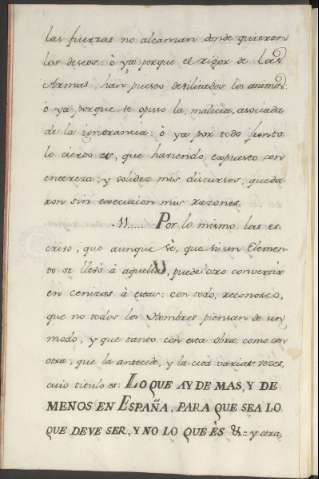 las fuerzas no alcanzan donde quieren
los deseos: ò ya porque el rigor de las
Armas, han puesto debilitados los animos:
ò ya porque se opuso la malicia, asociada
de la ignorancia: ò ya por todo junto
lo cierto es, que haviendo expuesto con
entereza, y solidez mis discursos, queda
ron sin execucion mis razones.
Por lo mismo las es
crivo, que aunque vè, que si un Elemen
to se llevó à aquellas, puede otro convertir
en cenizas à estas: con todo, reconosco,
que no todos los Hombres piensan de un
modo, y que tanto con esta obra como con
otra, que la antecede, y la citò varias veces,
cuio titulo es: LO QUE AY DE MAS, Y DE
MENOS EN ESPAÑA, PARA QUE SEA LO
QUE DEVE SER, Y NO LO QUE ÈS &.= y otra,